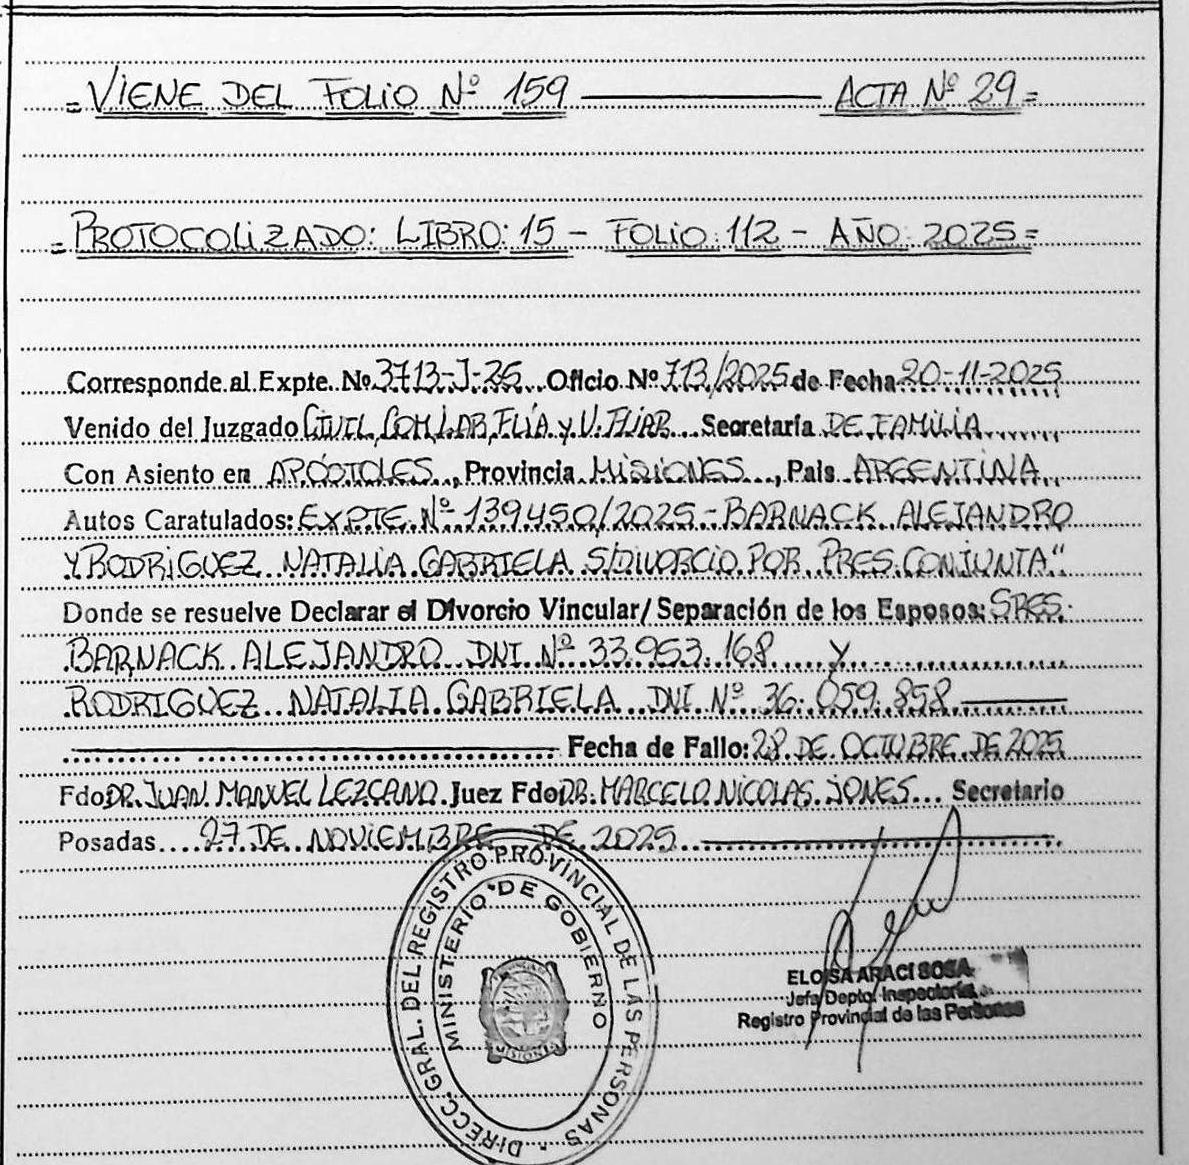 = VIENE DEL FOLIO Nº 159 ACTA Nº 29 =
= PROTOCOLIZADO: LIBRO: 15 - FOLIO: 112 - AÑO: 2025 =
Corresponde al Expte. Nº 3713-J-25. Oficio Nº 713/2025 de Fecha 20-11-2025
Venido del Juzgado CIVIL, COM, LAB, FLIA y V. FLIAR Secretaría DE FAMILIA
Con Asiento en APÓSTOLES, Provincia MISIONES, Pais ARGENTINA
Autos Caratulados: EXPTE. Nº 139450/2025 - BARNACK ALEJANDRO
Y RODRIGUEZ NATALIA GABRIELA S/DIVORCIO POR PRES. CONJUNTA"
Donde se resuelve Declarar el Divorcio Vincular/ Separación de los Esposos: SRES.
BARNACK ALEJANDRO DNI Nº 33.953.168 Y
RODRIGUEZ NATALIA GABRIELA DNI Nº 36.059.858
Fecha de Fallo: 28 DE OCTUBRE DE 2025
Fdo DR. JUAN MANUEL LEZCANO Juez Fdo DR. MARCELO NICOLAS JONES Secretario
Posadas 27 DE NOVIEMBRE DE 2025
DIRECC. GRAL. DEL REGISTRO PROVINCIAL DE LAS PERSONAS
MINISTERIO DE GOBIERNO
MISIONES
ELOISA ARACI SOSA
Jefa Depto. Inspectoría
Registro Provincial de las Personas